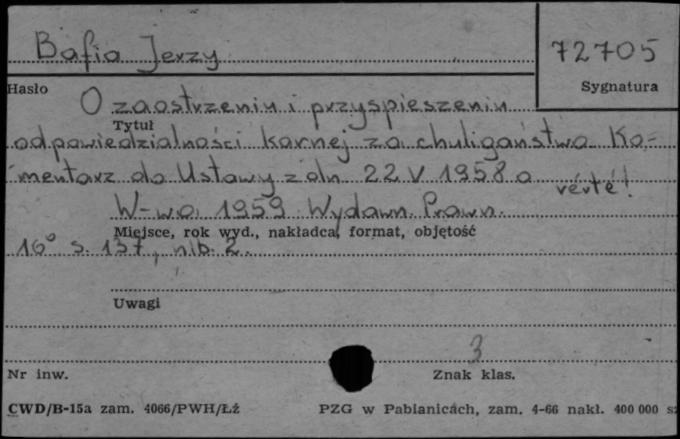 Bafia Jerzy
72705
Hasło
Sygnatura
O zaostrzeniu i przyspieszeniu
Tytuł
odpowiedzialności karnej za chuligaństwo Ko=
mentarz do Ustawy z dn. 22 V 1958 o
verte!
W-wa 1959 Wydawn. Prawn.
Miejsce, rok wyd., nakładca, format, objętość
16° s. 137, nlb. 2.
Uwagi
3
Nr inw.
Znak klas.
CWD/B-15a zam. 4066/PWH/Łź
PZG w Pabianicach, zam. 4-66 nakł. 400 000 sz